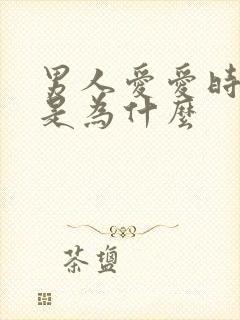 男人愛愛時
是為什麼
茶鹽